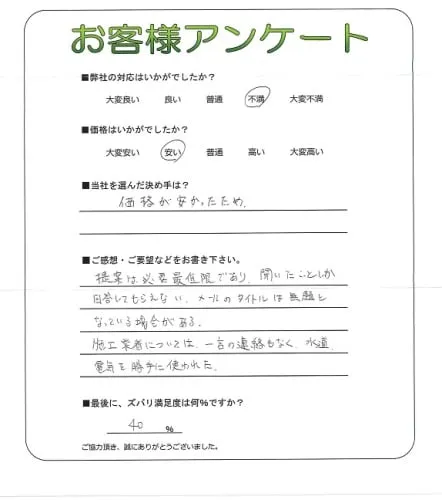 お客様アンケート
■弊社の対応はいかがでしたか？
大変良い 良い 普通 不満 大変不満
■価格はいかがでしたか？
大変安い 安い 普通 高い 大変高い
■当社を選んだ決め手は？
価格が安かったため。
■ご感想・ご要望などをお書き下さい。
提案は必要最低限であり、聞いたことしか
回答してもらえない。メールのタイトルは無題と
なっている場合がある。
施工業者については、一言の連絡もなく、水道、
電気を勝手に使われた。
■最後に、ズバリ満足度は何％ですか？
40 ％
ご協力頂き、誠にありがとうございました。